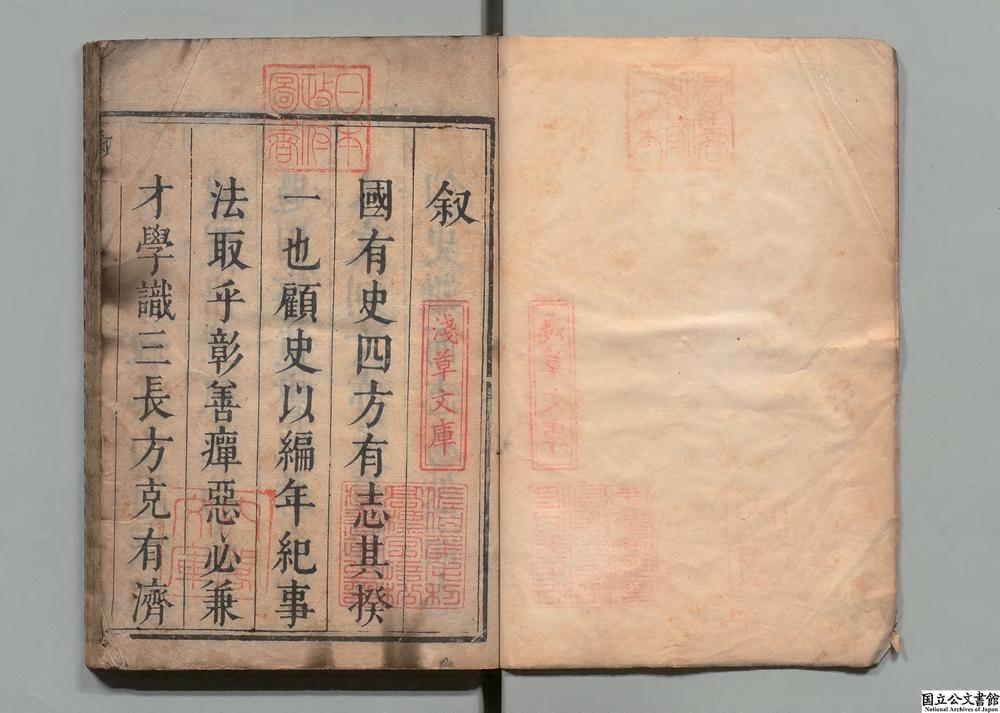 叙
國有史四方有志其揆
一也顧史以編年紀事
法取乎彰善癉惡必兼
才學識三長方克有濟
日本
政府
圖書
淺草文庫
国立公文書館
National Archives of Japan